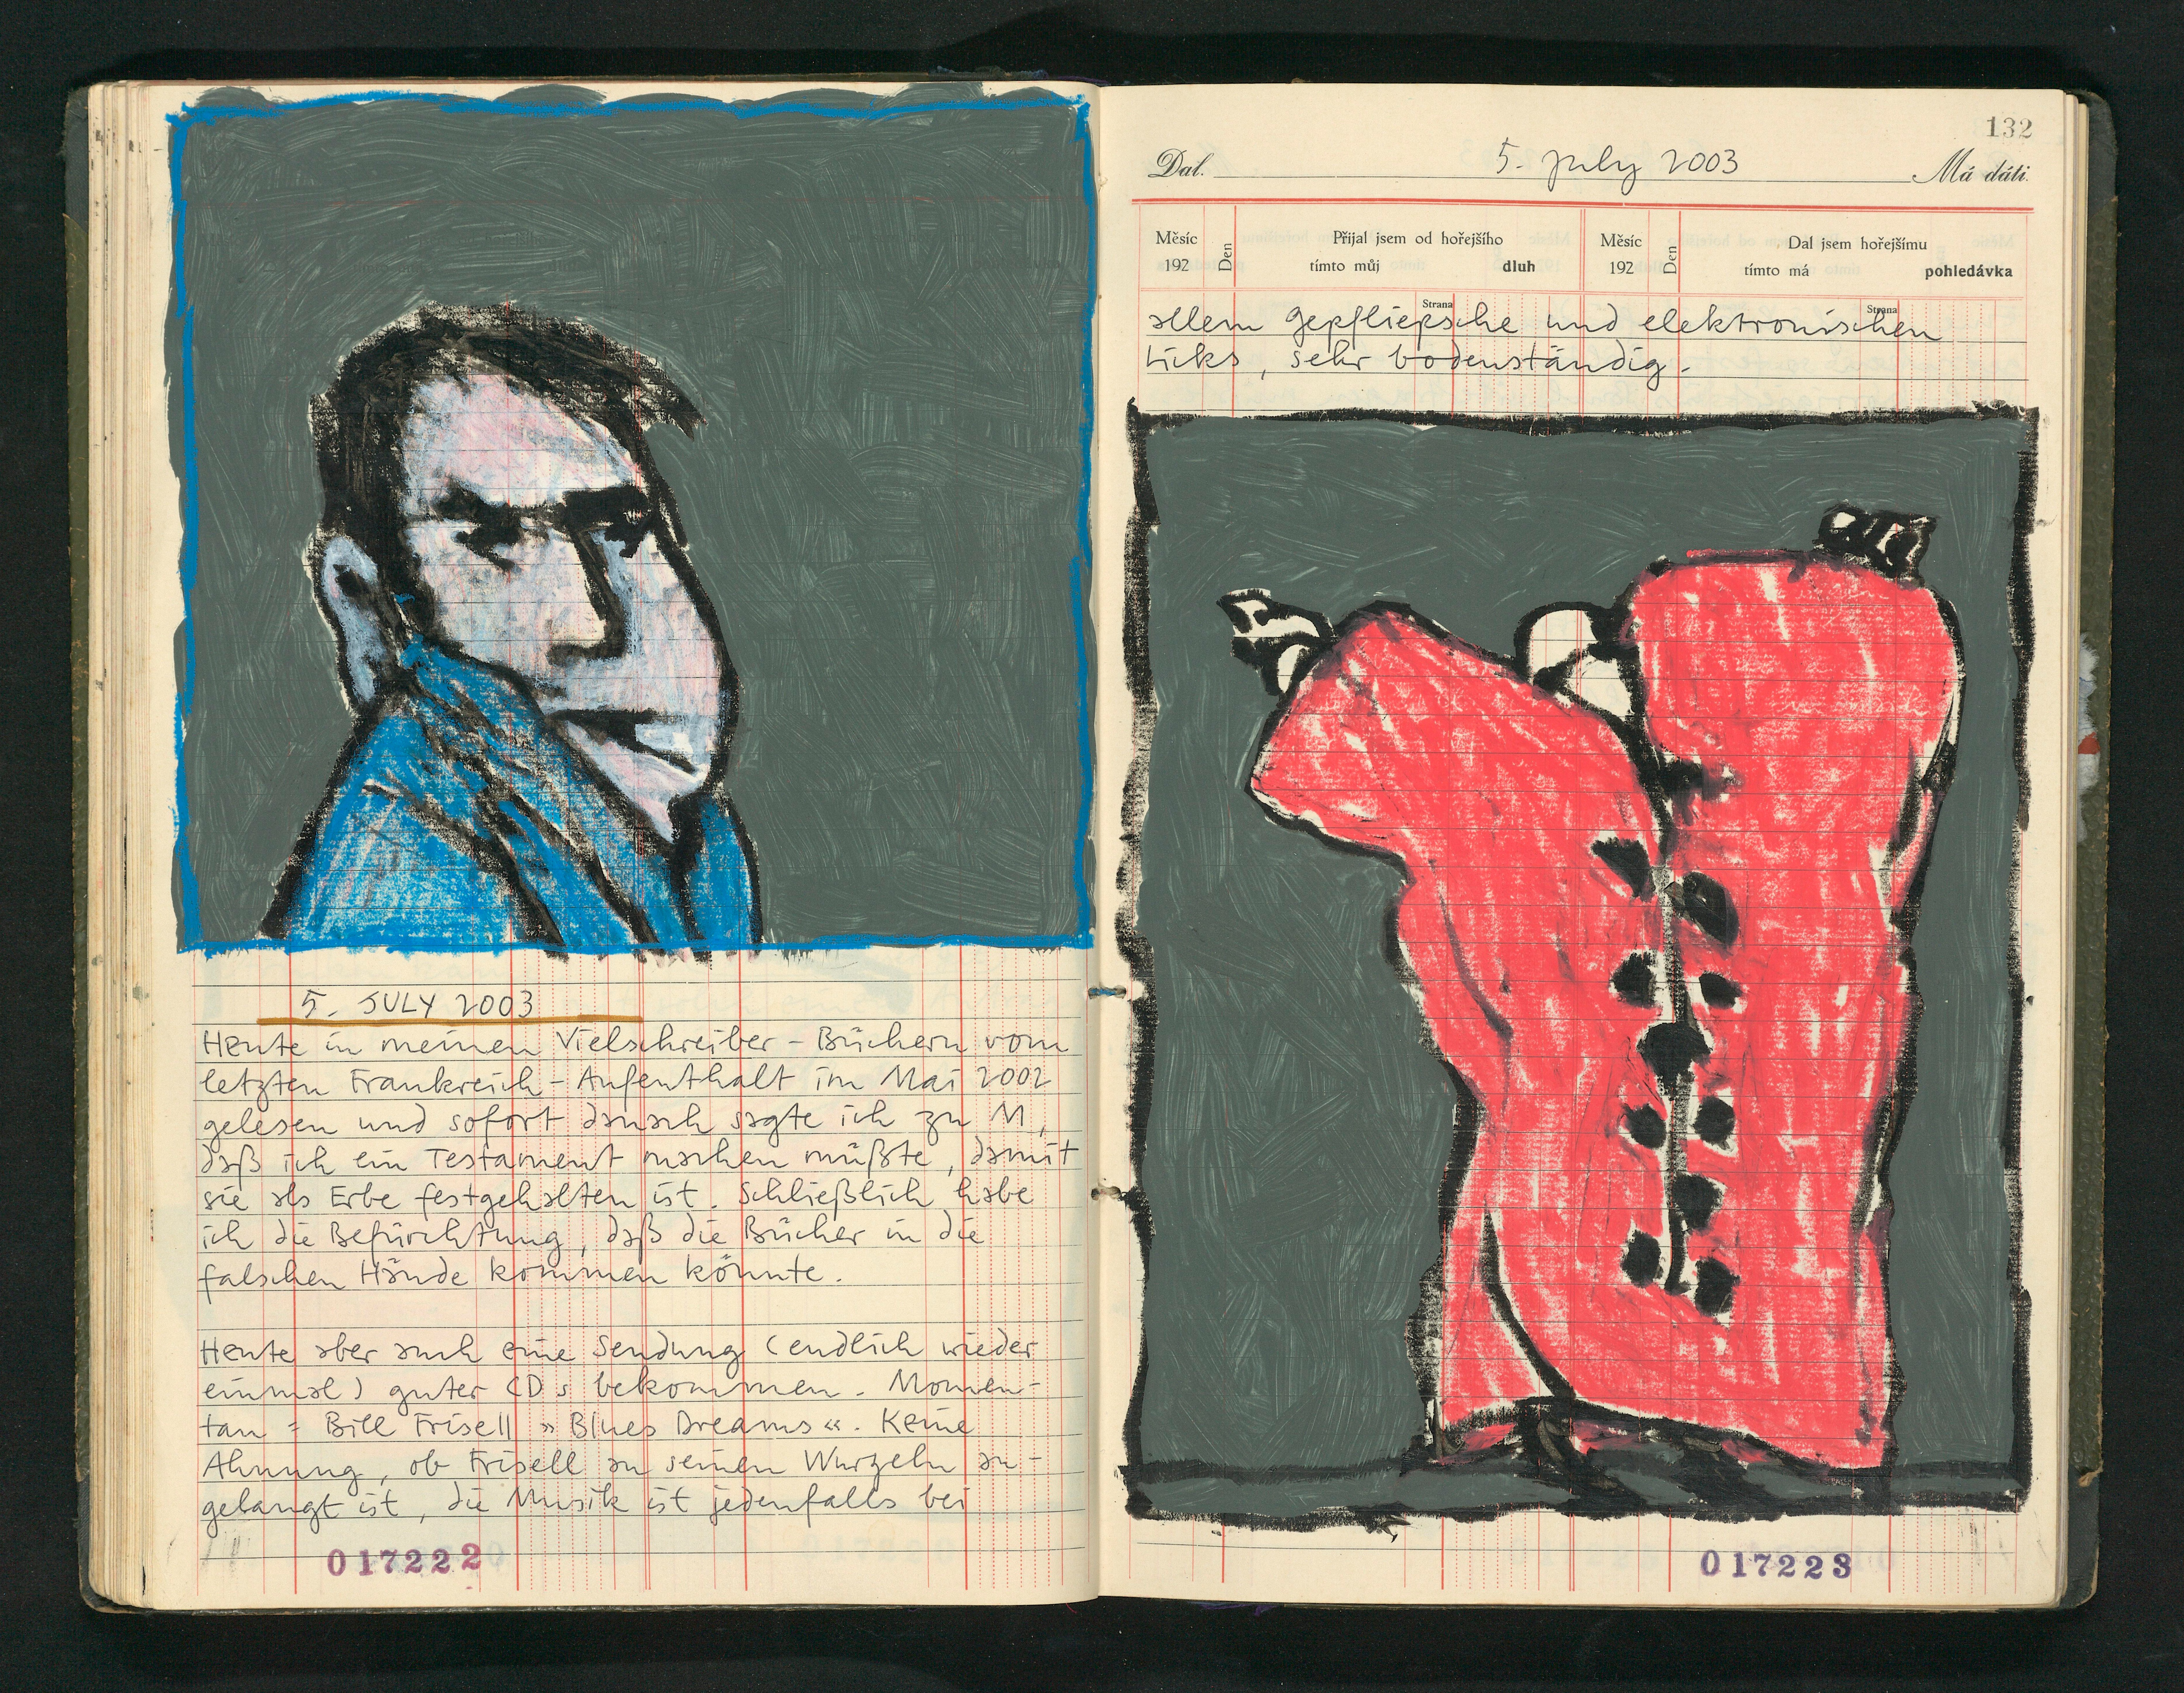 5. JULY 2003
Heute in meinen Vielschreiber-Büchern vom
letzten Frankreich-Aufenthalt im Mai 2002
gelesen und sofort danach sagte ich zu M,
daß ich ein Testament machen müßte, damit
sie als Erbe festgehalten ist. Schließlich habe
ich die Befürchtung, daß die Bücher in die
falschen Hände kommen könnte.
Heute aber auch eine Sendung (endlich wieder
einmal) guter CDs bekommen. Momen-
tan: Bill Frisell »Blues Dreams«. Keine
Ahnung, ob Frisell an seinen Wurzeln an-
gelangt ist, die Musik ist jedenfalls bei
017222
132
Dal. 5. July 2003 Má dáti.
Měsíc 192 Den Přijal jsem od hořejšího tímto můj dluh Měsíc 192 Den Dal jsem hořejšímu tímto má pohledávka
Strana Strana
allem Gepfliepsche und elektronischen
Licks, sehr bodenständig.
017223